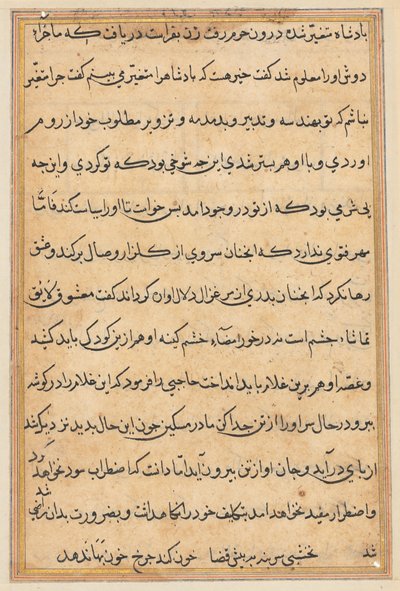 بادشاه متغیّر شده درون حرم رفت زن بفراست دریافت که ماجراء
دوش او را معلوم شد گفت خیر هست که بادشاه را متغیّر می بینم گفت چرا متغیّر
نباشم که تو بهندسه و تدبیر و بدمدمه و تزویر مطلوب خود از روم
اوردی و با او هم بستر شدی این چه شوخی بود که تو کردی و این چه
بی شرمی بود که از تو در وجود امد بس خواست تا او را سیاست کند فامّا
مهر فتوی نداد که انجنان سروی از کلزار وصال برکند و عشق
رها نکرد که انجنان بدری از سر دلال اوان کو داند گفت معشوق لایق
تماشاء چشم است نه در خور امضاء خشم کینه او هم ازین کودک باید کشید
و غصّه او هم برین غلام باید انداخت حاجبی را فرمود که این غلام را در کوشه
ببر و در حال سر او را از تن جدا کن مادر مسکین چون این حال بدید نزدیک شد
از بای در آید و جان او از تن بیرون آید امّا دانست که اضطراب سود نخواهد کرد
و اضطرار مفید نخواهد امد بتکلیف خود را نکاهداشت و بضرورت بدان راضی شد
شد نخشبی سر بنه به بیش قضا خون کند چرخ خون بهاندهد